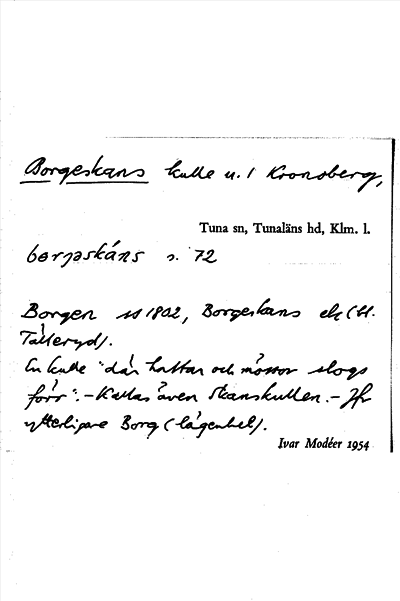 Borgeskans kulle u. l Kronoberg,
Tuna sn, Tunaläns hd, Klm. l.
bɵrjəskáns s. 72
Borgen ss 1802, Borgeskans ek (Bl.
Tålleryd).
En kulle "där hattar och mössor slogs
förr". - Kallas även Skanskullen. - Jfr
ytterligare Borg (lägenhet).
Ivar Modéer 1954